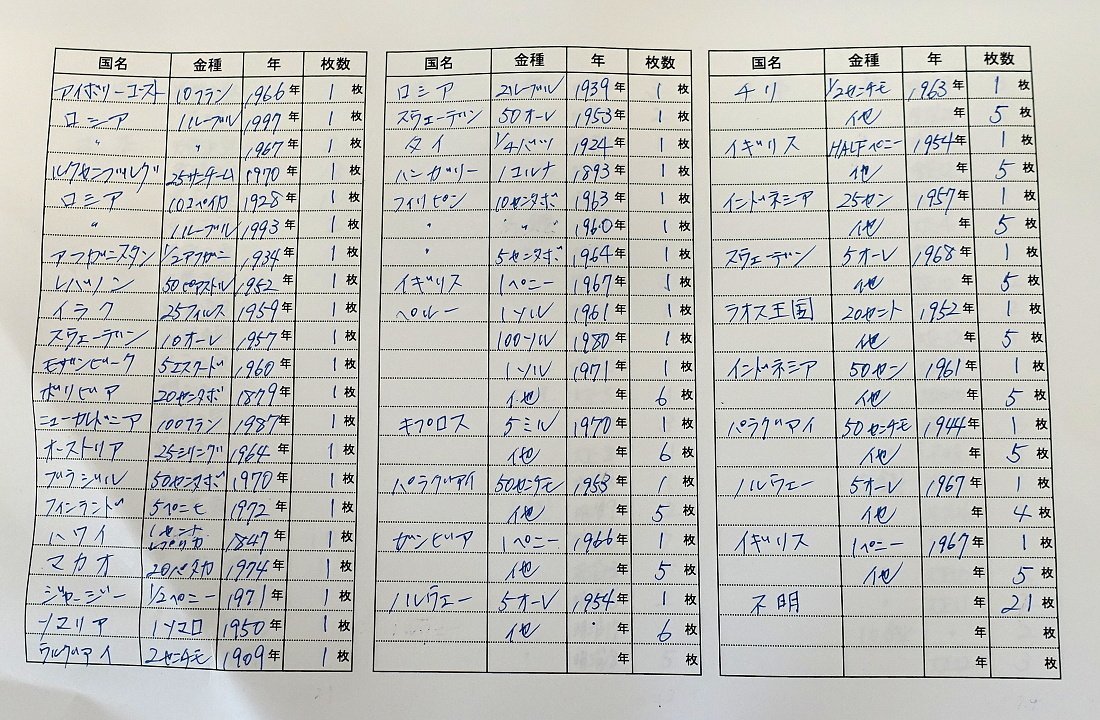 国名 金種 年 枚数
アイボリーコースト 10フラン 1966年 1枚
ロシア 1ルーブル 1997年 1枚
〃 〃 1967年 1枚
ルクセンブルグ 25サンチーム 1970年 1枚
ロシア 10コペイカ 1928年 1枚
〃 1ルーブル 1993年 1枚
アフガニスタン 1/2アフガニー 1934年 1枚
レバノン 50ピアストル 1952年 1枚
イラク 25フィルス 1959年 1枚
スウェーデン 10オーレ 1957年 1枚
モザンビーク 5エスクード 1960年 1枚
ボリビア 20センタボ 1879年 1枚
ニューカルドニア 100フラン 1987年 1枚
オーストリア 25シリング 1964年 1枚
ブラジル 50センタボ 1970年 1枚
フィンランド 5ペニモ 1972年 1枚
ハワイ 1セント レプリカ 1847年 1枚
マカオ 20パタカ 1974年 1枚
ジャージー 1/2ペニー 1971年 1枚
ソマリア 1ソマロ 1950年 1枚
ウルグアイ 2センチモ 1909年 1枚
国名 金種 年 枚数
ロシア 2ルーブル 1939年 1枚
スウェーデン 50オーレ 1953年 1枚
タイ 1/4バーツ 1924年 1枚
ハンガリー 1コルナ 1893年 1枚
フィリピン 10センタボ 1963年 1枚
〃 〃 1960年 1枚
〃 5センタボ 1964年 1枚
イギリス 1ペニー 1967年 1枚
ペルー 1ソル 1961年 1枚
100ソル 1980年 1枚
1ソル 1971年 1枚
他 年 6枚
キプロス 5ミル 1970年 1枚
他 年 6枚
パラグアイ 50センチモ 1953年 1枚
他 年 5枚
ザンビア 1ペニー 1966年 1枚
他 年 5枚
ノルウェー 5オーレ 1954年 1枚
他 年 6枚
年 枚
国名 金種 年 枚数
チリ 1/2センチモ 1963年 1枚
他 年 5枚
イギリス HALFペニー 1954年 1枚
他 年 5枚
インドネシア 25セン 1957年 1枚
他 年 5枚
スウェーデン 5オーレ 1968年 1枚
他 年 5枚
ラオス王国 20セント 1952年 1枚
他 年 5枚
インドネシア 50セン 1961年 1枚
他 年 5枚
パラグアイ 50センチモ 1944年 1枚
他 年 5枚
ノルウェー 5オーレ 1967年 1枚
他 年 4枚
イギリス 1ペニー 1967年 1枚
他 年 5枚
不明 年 21枚
年 枚
年 枚